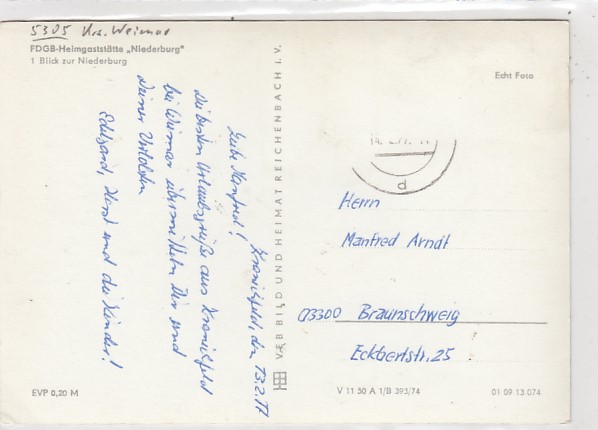 5305 Krs. Weimar
FDGB-Heimgaststätte „Niederburg"
1 Blick zur Niederburg
Echt Foto
Kranichfeld, den 13.2.77
Liebe Manfred!
Die besten Urlaubsgrüße aus Kranichfeld
bei Weimar übermitteln Dir und
Deiner
Edelgard, Horst und die Kinder!
VEB BILD UND HEIMAT REICHENBACH I. V.
d
Herrn
Manfred Arndt
03300 Braunschweig
Eckbertstr. 25
EVP 0,20 M
V 11 50 A 1/B 393/74
01 09 13 074